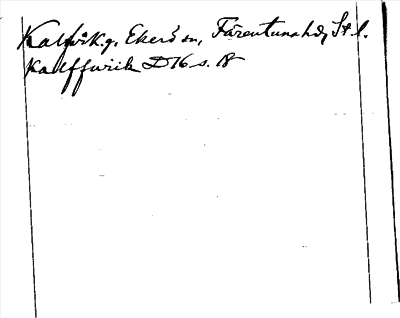 Kalvik. g. Ekerö sn, Färentuna hd, St. l.
Kalffwiik D 16 s. 18